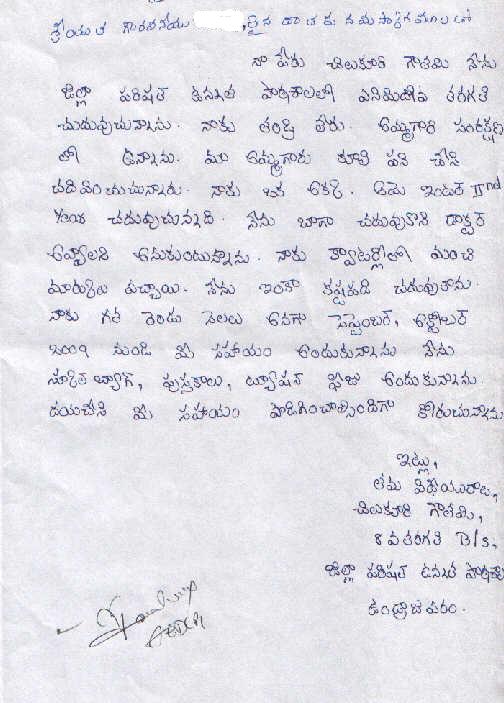 శ్రీయుత గౌరవనీయు ఐన దాతకు నమస్కారములతో
నా పేరు చిలుకూరి గౌతమి నేను
జిల్లా పరిషత్ ఉన్నత పాఠశాలలో ఎనిమిదోవ తరగతి
చదువుచున్నాను. నాకు తండ్రి లేరు. అమ్మగారి సంరక్షణ
లో ఉన్నాను. మా అమ్మగారు కూలి పని చేసి
చదివించుచున్నారు. నాకు ఒక అక్క. ఆమె ఇంటర్ IInd
Year చదువుచున్నది. నేను బాగా చదువుకొని డాక్టర్
అవ్వాలని అనుకుంటున్నాను. నాకు క్వాటర్లీలో మంచి
మార్కులు వచ్చాయి. నేను ఇంకా కష్టపడి చదువుతాను.
నాకు గత రెండు నెలలు అనగా సెప్టెంబర్, అక్టోబర్
2009 నుండి మీ సహాయం అందుకున్నాను నేను
స్కూల్ బ్యాగ్, పుస్తకాలు, ట్యూషన్ ఫీజు అందుకున్నాను.
దయచేసి మీ సహాయం పొడిగించాల్సిందిగా కోరుచున్నాను
ఇట్లు,
తమ విధేయురాలు,
చిలుకూరి గౌతమి,
8వ తరగతి B/s,
జిల్లా పరిషత్ ఉన్నత పాఠశాల
ఉండ్రాజవరం.